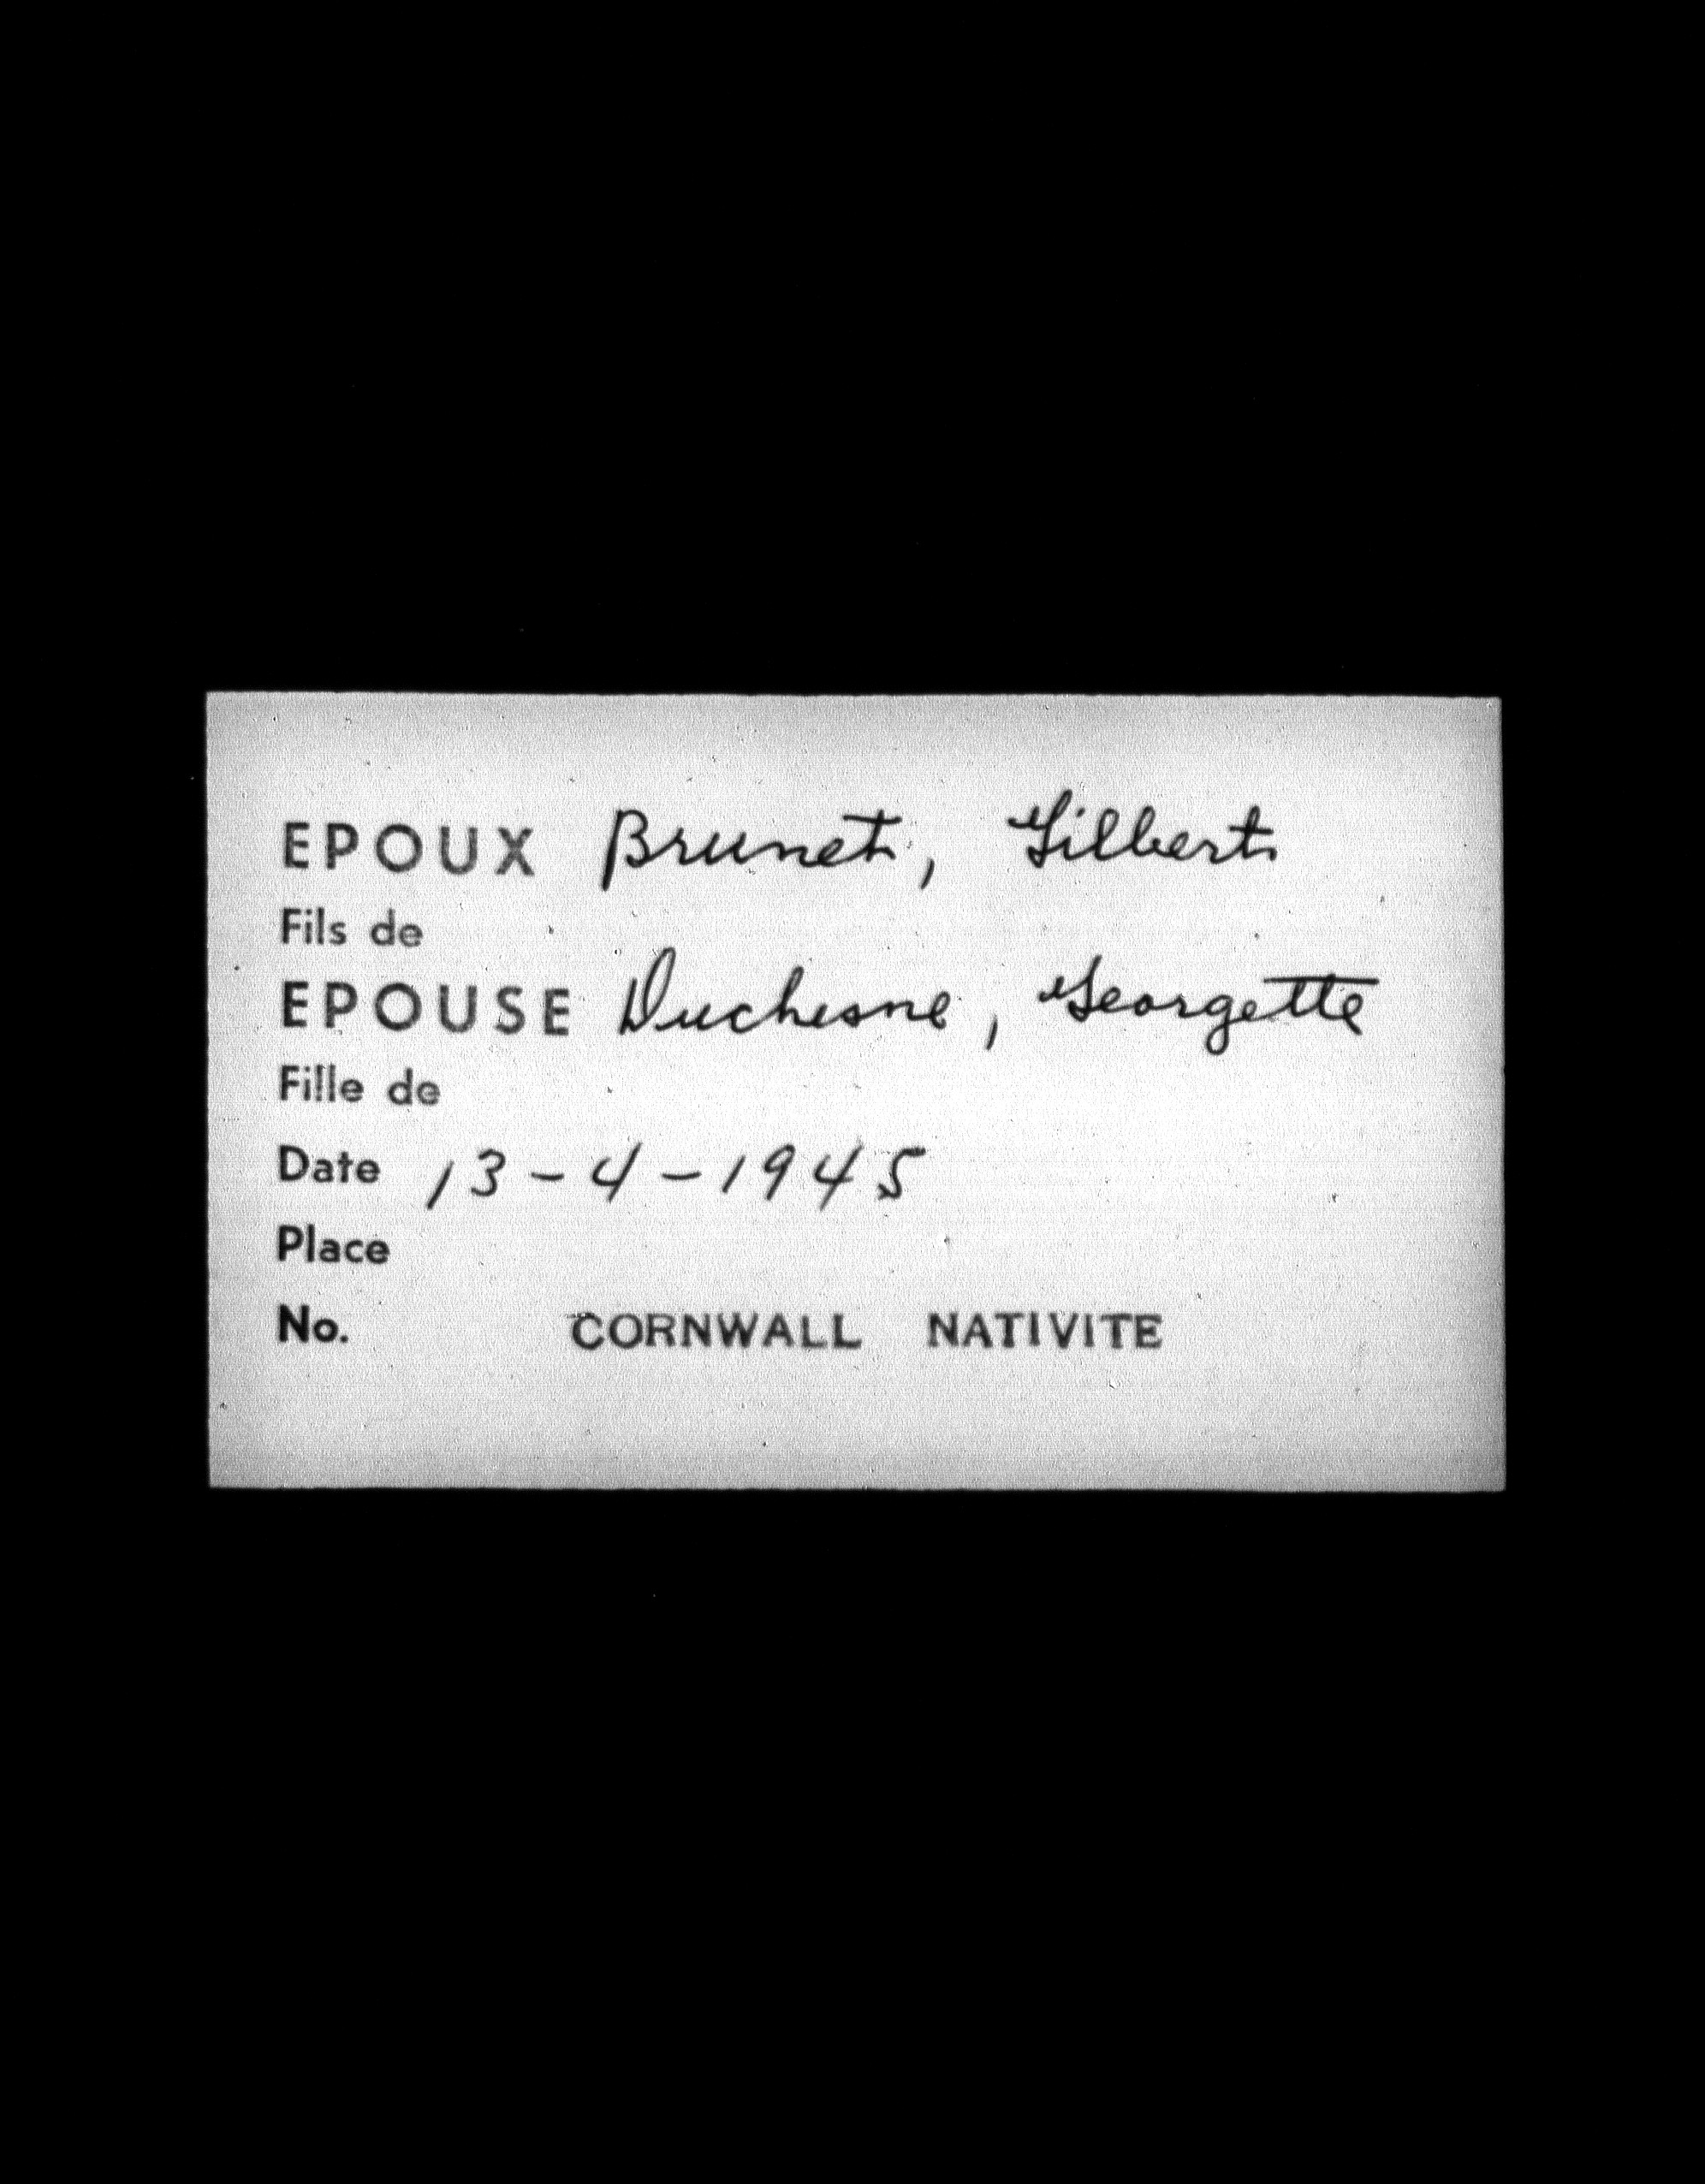 EPOUX Brunet, Gilbert
Fils de
EPOUSE Duchesne, Georgette
Fille de
Date 13-4-1945
Place
No. CORNWALL NATIVITE